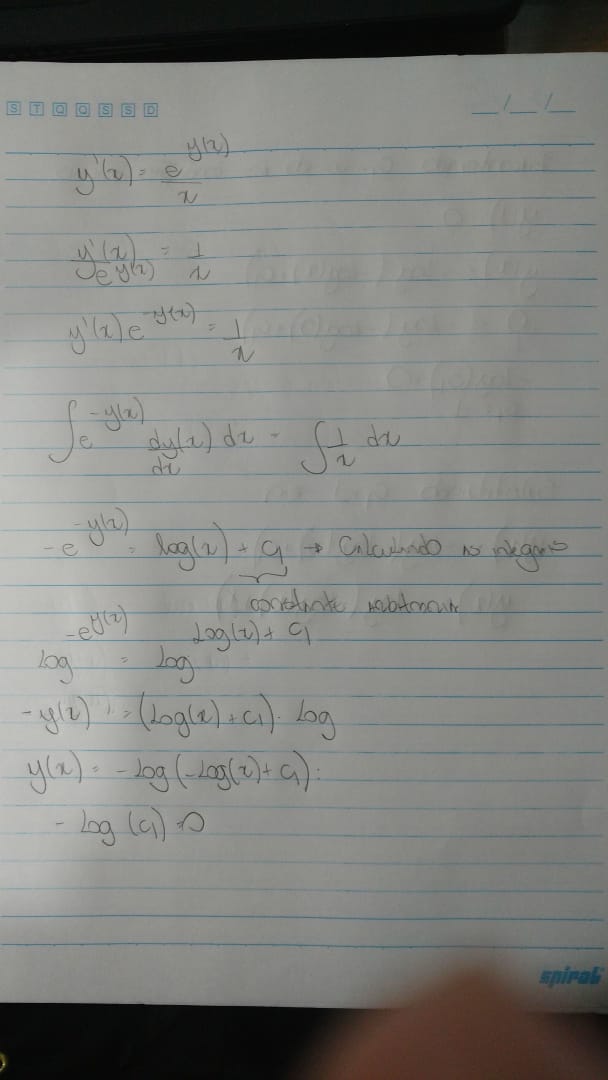 S T Q Q S S D __/__/__
y'(x) = e^y(x) / x
y'(x) / e^y(x) = 1/x
y'(x) e^-y(x) = 1/x
∫ e^-y(x) dy(x)/dx dx = ∫ 1/x dx
-e^-y(x) = log(x) + c₁ → Calculando as integrais
constante
log^-e^y(x) = log^log(x) + c₁
-y(x) = (log(x) + c₁). log
y(x) = -log(-log(x) + c₁):
- log (c₁) = 0
spiral